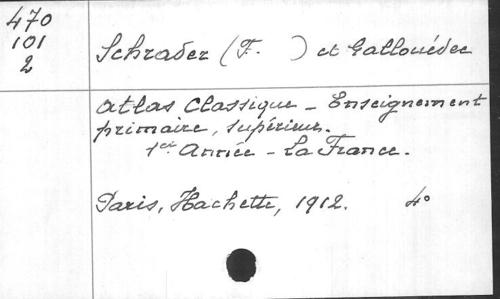 470
101
2
Schrader (F. ) et Gallouédec
Atlas Classique - Enseignement
primaire, supérieur.
1ère Année - La France.
Paris, Hachette, 1912. 4°